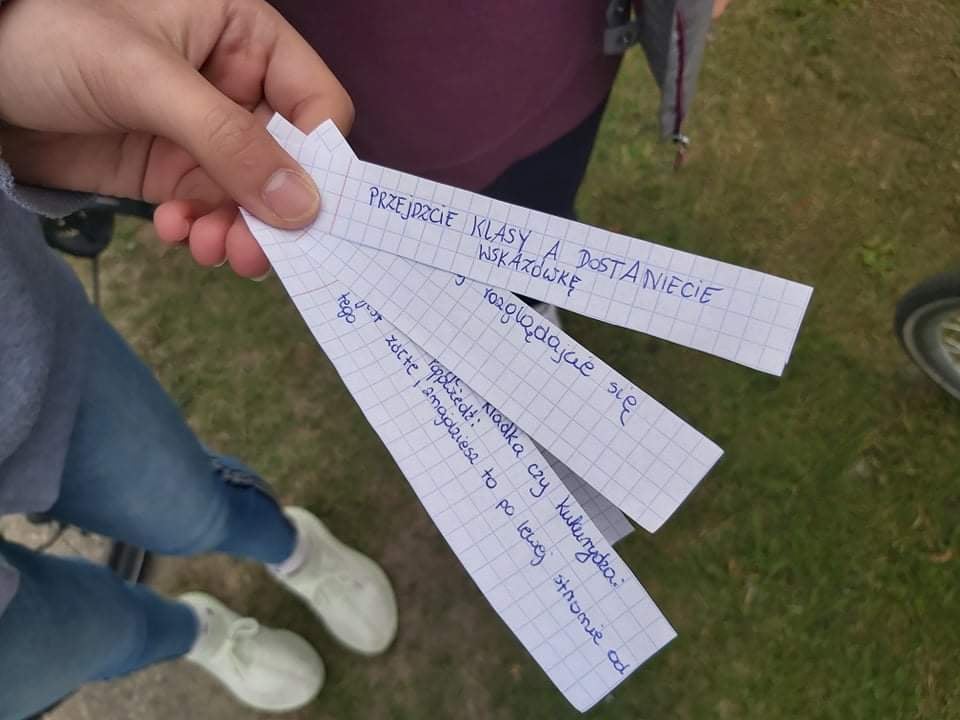 PRZEJDZCIE KLASY A DOSTANIECIE
WSKAZÓWKĘ
rozglądajcie się
czy kukurydza:
żółte, znajdziesz to po lewej stronie od
tego